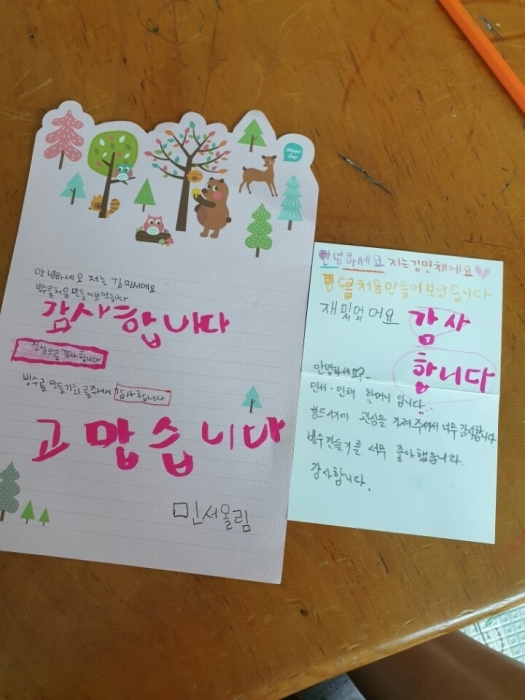 Happy Day
안녕하세요 저는 김민서에요
빙수를 처음 만들어 보았습니다
감사합니다
진심으로 감사합니다
빙수를 만들기 해주셔서 감사합니다
고맙습니다
민서올림
안녕하세요 저는김민채에요
빙수를 처음만들어보았습니다
재밌었어요 감사
합니다
안녕하세요?
민서·민채 할머니 입니다.
관심을 가져 주셔서 너무 감사합니다
빙수만들기를 너무 좋아했습니다.
감사합니다.